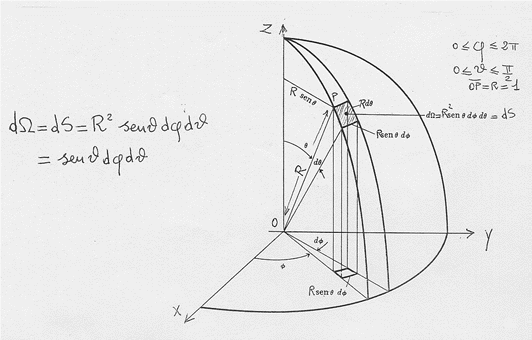 Z
0 ≤ φ ≤ 2π
0 ≤ ϑ ≤ π/2
OP = R = 1
R senθ
P
Rdθ
dΩ = R² sen ϑ dφ dϑ = dS
Rsenθ dφ
dΩ = dS = R² senϑ dφ dϑ
= senϑ dφ dϑ
θ
dθ
R
O
Y
dφ
φ
R sen θ dφ
X